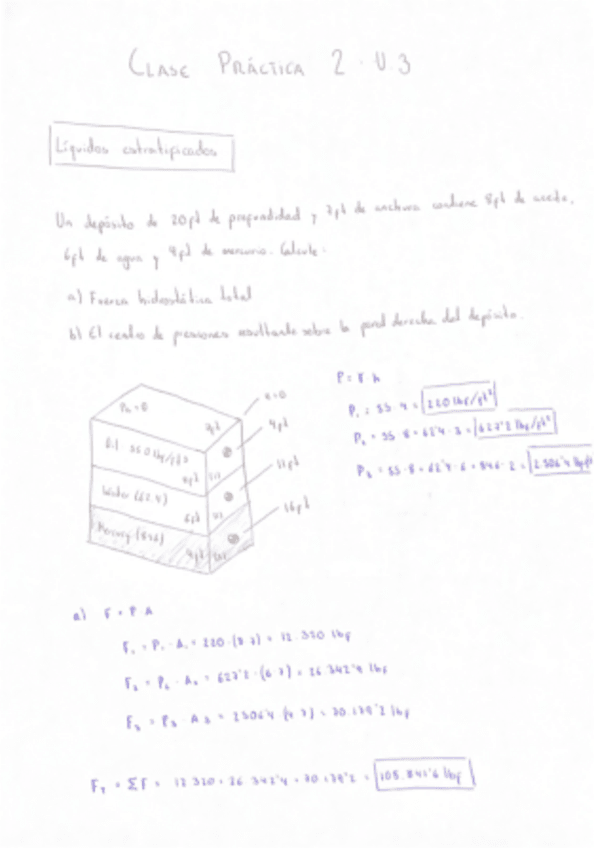 CLASE PRÁCTICA 2 - U.3
Líquidos estratificados
Un depósito de 20 ft de profundidad y 7 ft de anchura contiene 8 ft de aceite,
6 ft de agua y 4 ft de mercurio. Calcule:
a) Fuerza hidrostática total
b) El centro de presiones resultante sobre la pared derecha del depósito.
Pa = 0
7ft
z=0
4ft
Oil 55.0 lbf/ft³
8ft
11ft
Water (62.4)
6ft
16ft
Mercury (846)
4ft
P = γ h
P₁ = 55 · 4 = 220 lbf/ft²
P₂ = 55 · 8 + 62'4 · 3 = 627'2 lbf/ft²
P₃ = 55 · 8 + 62'4 · 6 + 846 · 2 = 2.506'4 lbf/ft
a) F = P · A
F₁ = P₁ · A₁ = 220 · (8 · 7) = 12.320 lbf
F₂ = P₂ · A₂ = 627'2 · (6 · 7) = 26.342'4 lbf
F₃ = P₃ · A₃ = 2506'4 (4 · 7) = 70.179'2 lbf
F_T = ΣF = 12.320 + 26.342'4 + 70.179'2 = 108.841'6 lbf